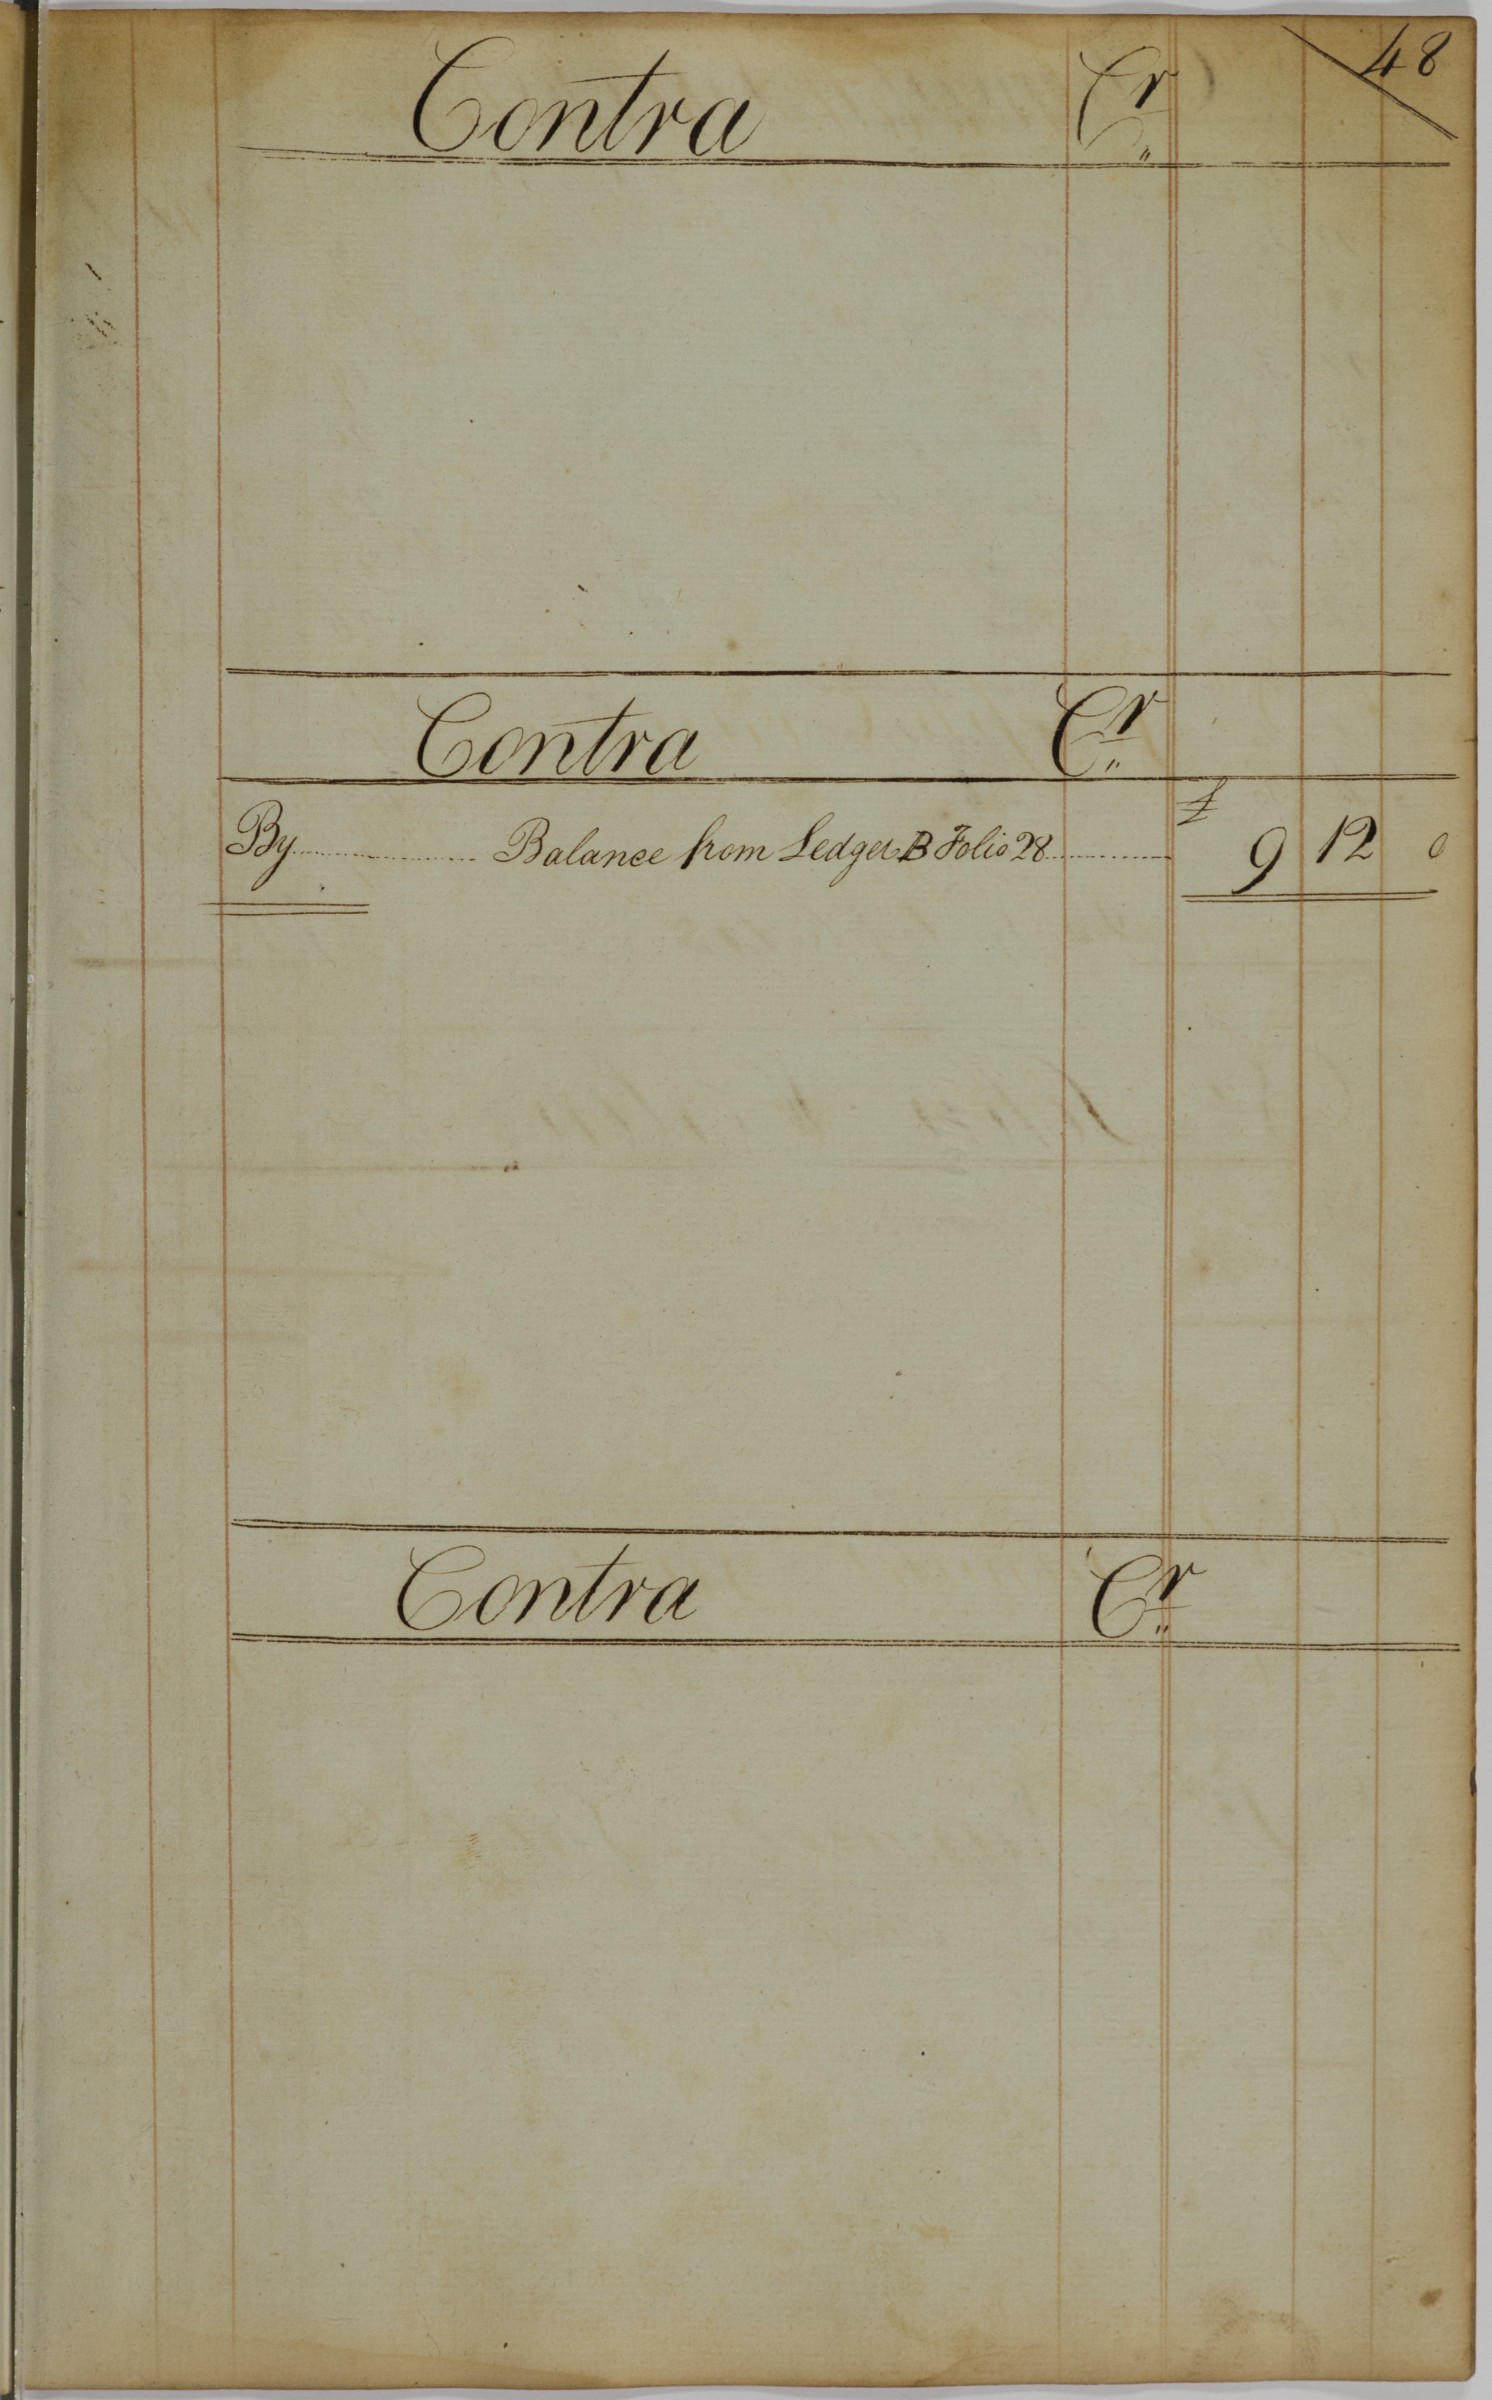 48
Contra Cr
Contra Cr
By Balance from Ledger B Folio 28 £ 9 12 0
Contra Cr